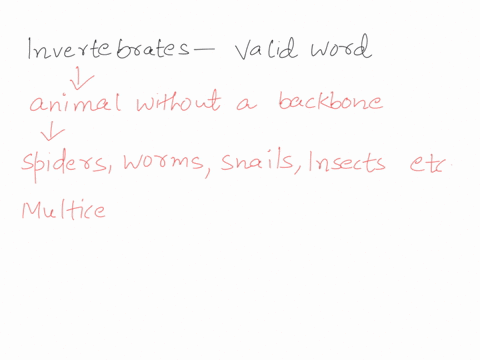 Invertebrates — Valid word
animal without a backbone
Spiders, worms, snails, Insects etc
Multice